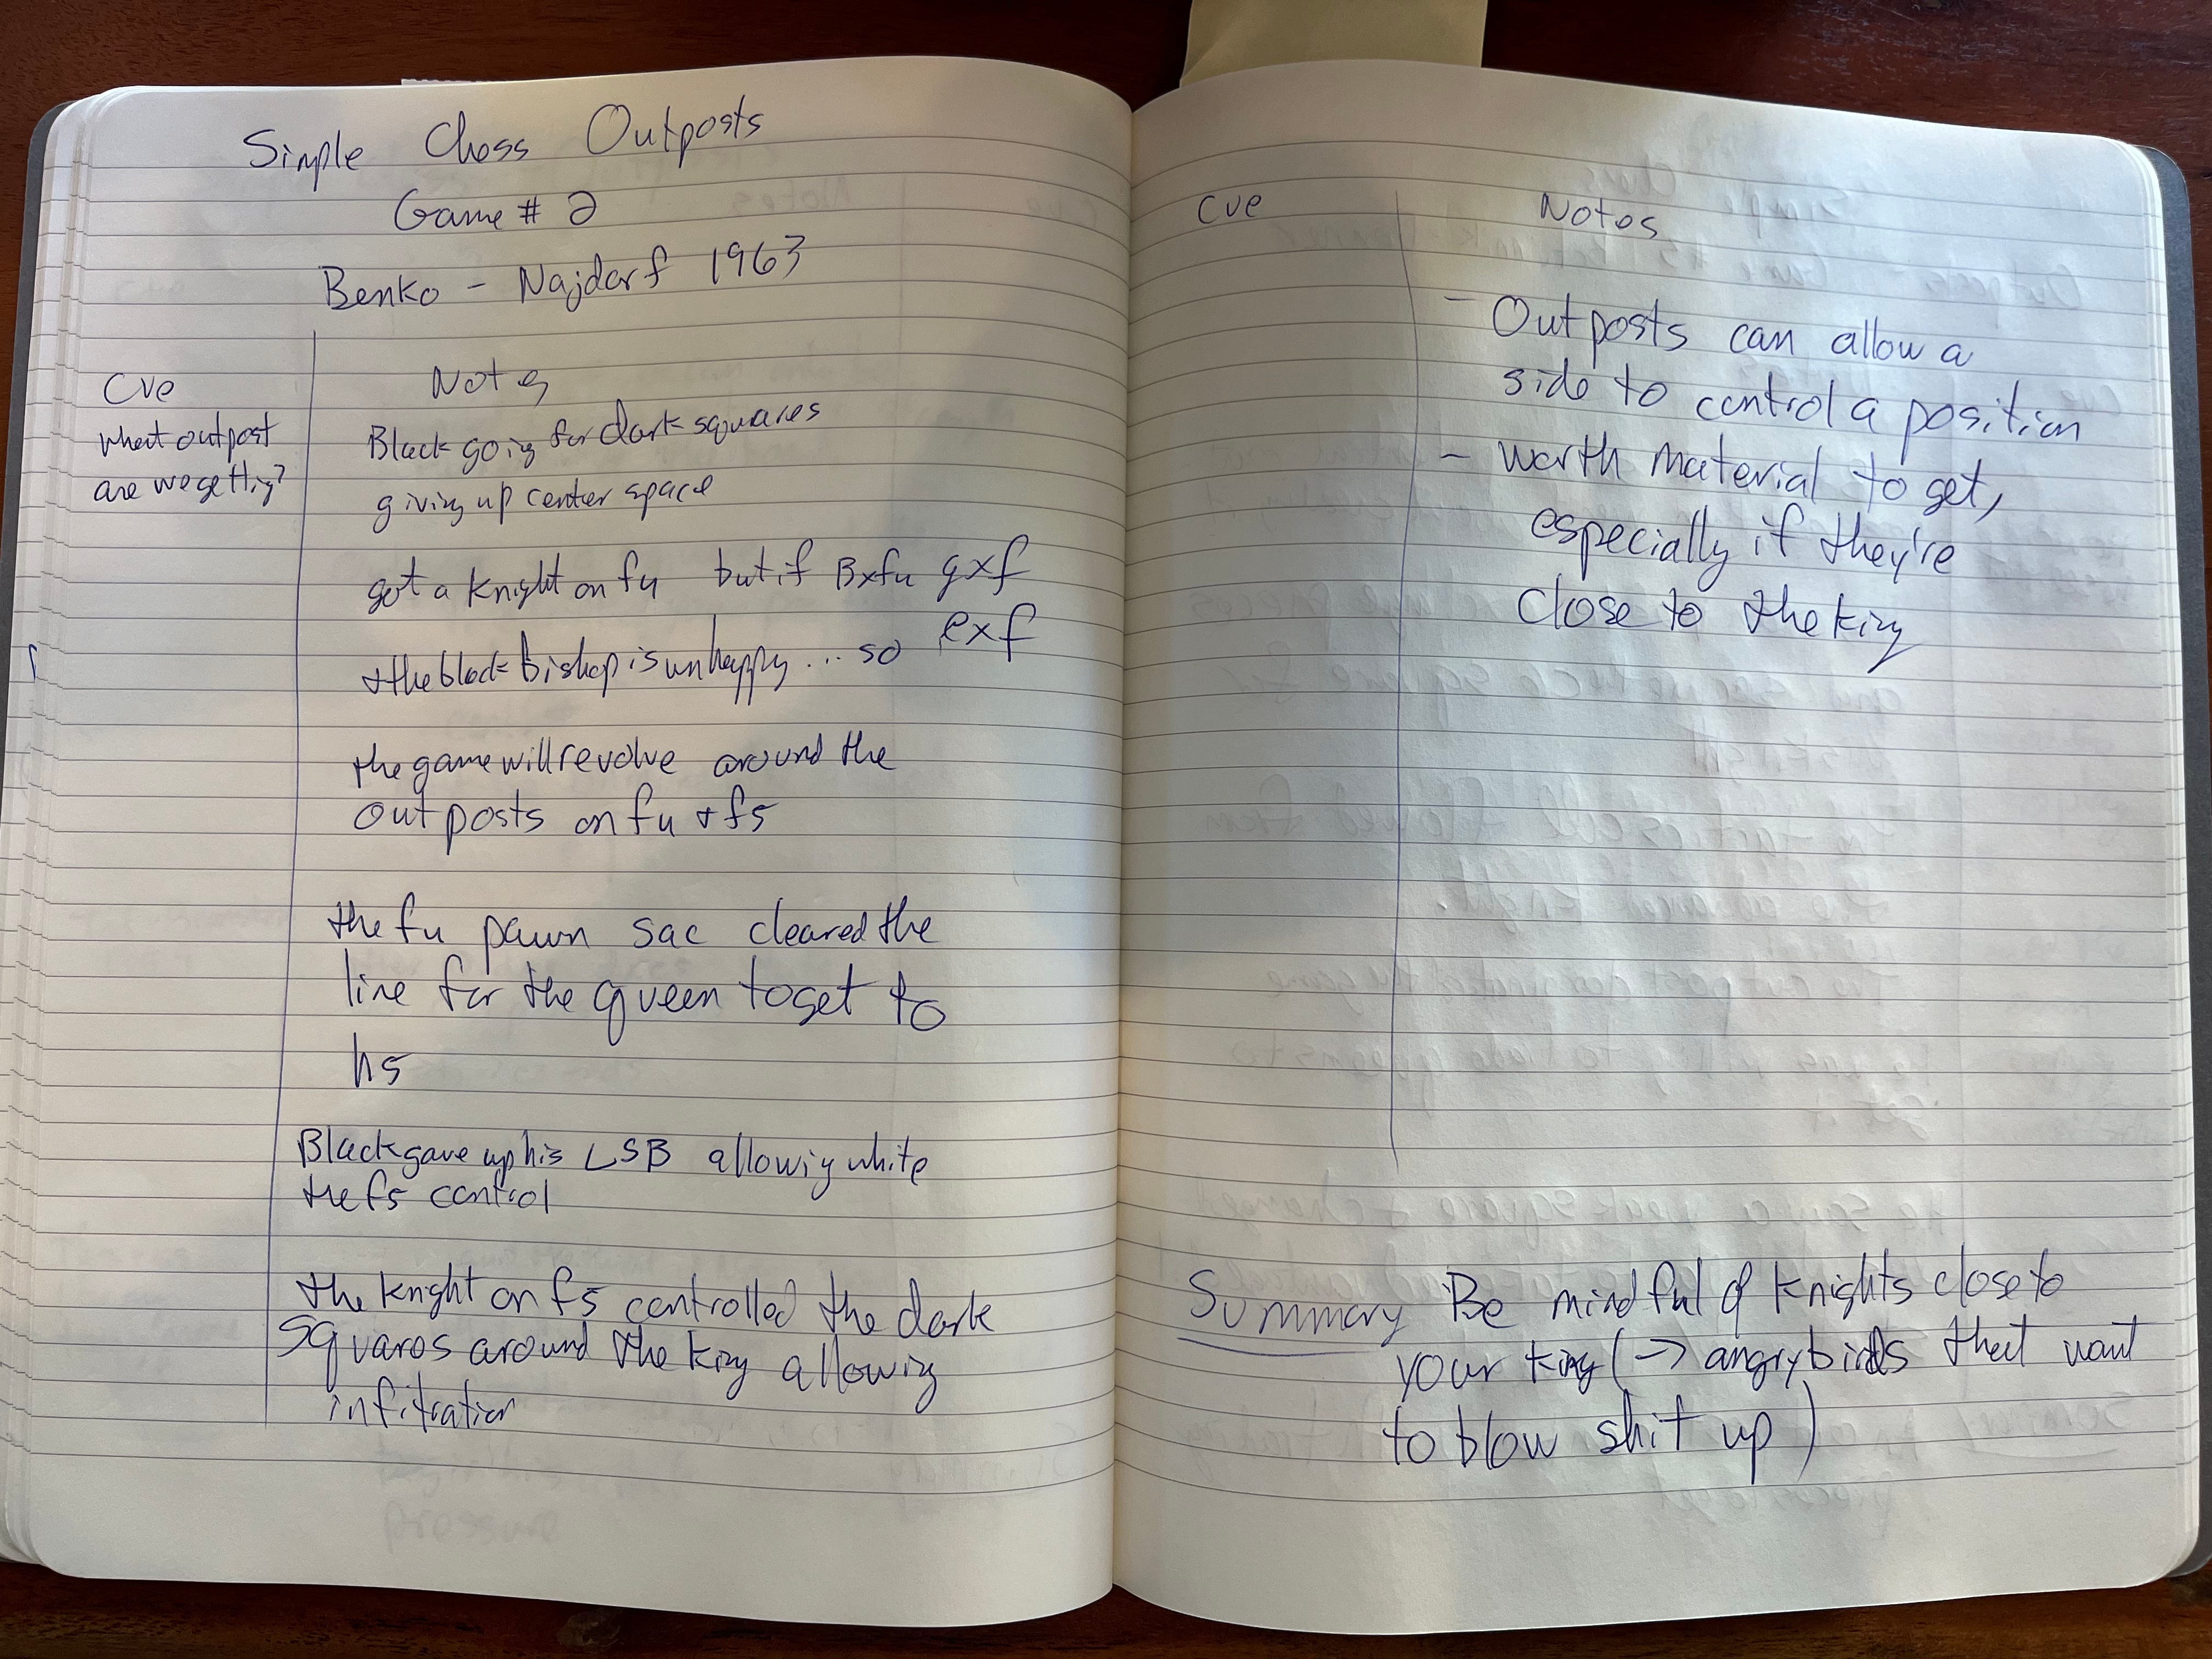 Simple Chess Outposts
Game # 2
Benko - Najdorf 1963
Cue
Notes
what outpost
are we getting?
Black going for dark squares
giving up center space
got a knight on f4 but if Bxf4 gxf
exf
+ the black bishop is unhappy... so
the game will revolve around the
outposts on f4 + f5
the f4 pawn sac cleared the
line for the queen to get to
h5
Black gave up his LSB allowing white
the f5 control
the knight on f5 controlled the dark
squares around the king allowing
infitration
Cue
Notes
- Outposts can allow a
side to control a position
- worth material to get,
especially if they're
close to the king
Summary Be mindful of knights close to
your king (-> angry birds that want
to blow shit up)